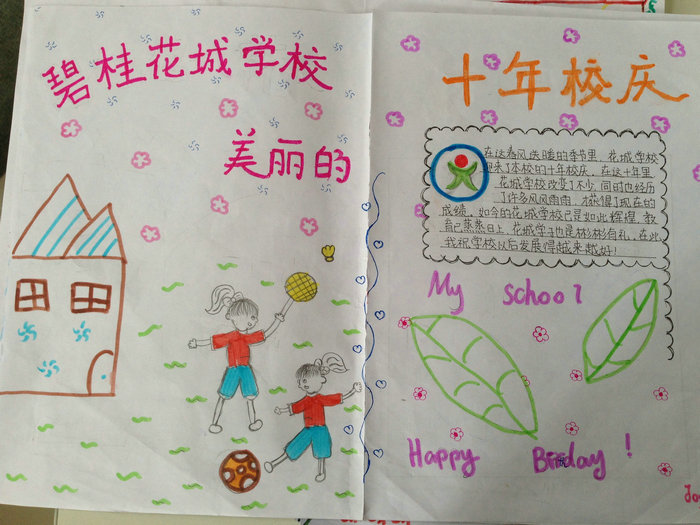 碧桂花城学校
美丽的
十年校庆
在这春风送暖的季节里，花城学校
迎来了本校的十年校庆，在这十年里
花城学校改变了不少，同时也经历
了许多风风雨雨，才获得了现在的
成绩，如今的花城学校已是如此辉煌，教
自己蒸蒸日上，花城学子也是彬彬有礼，在此，
我祝学校以后发展得越来越好！
My school
Happy Birday !